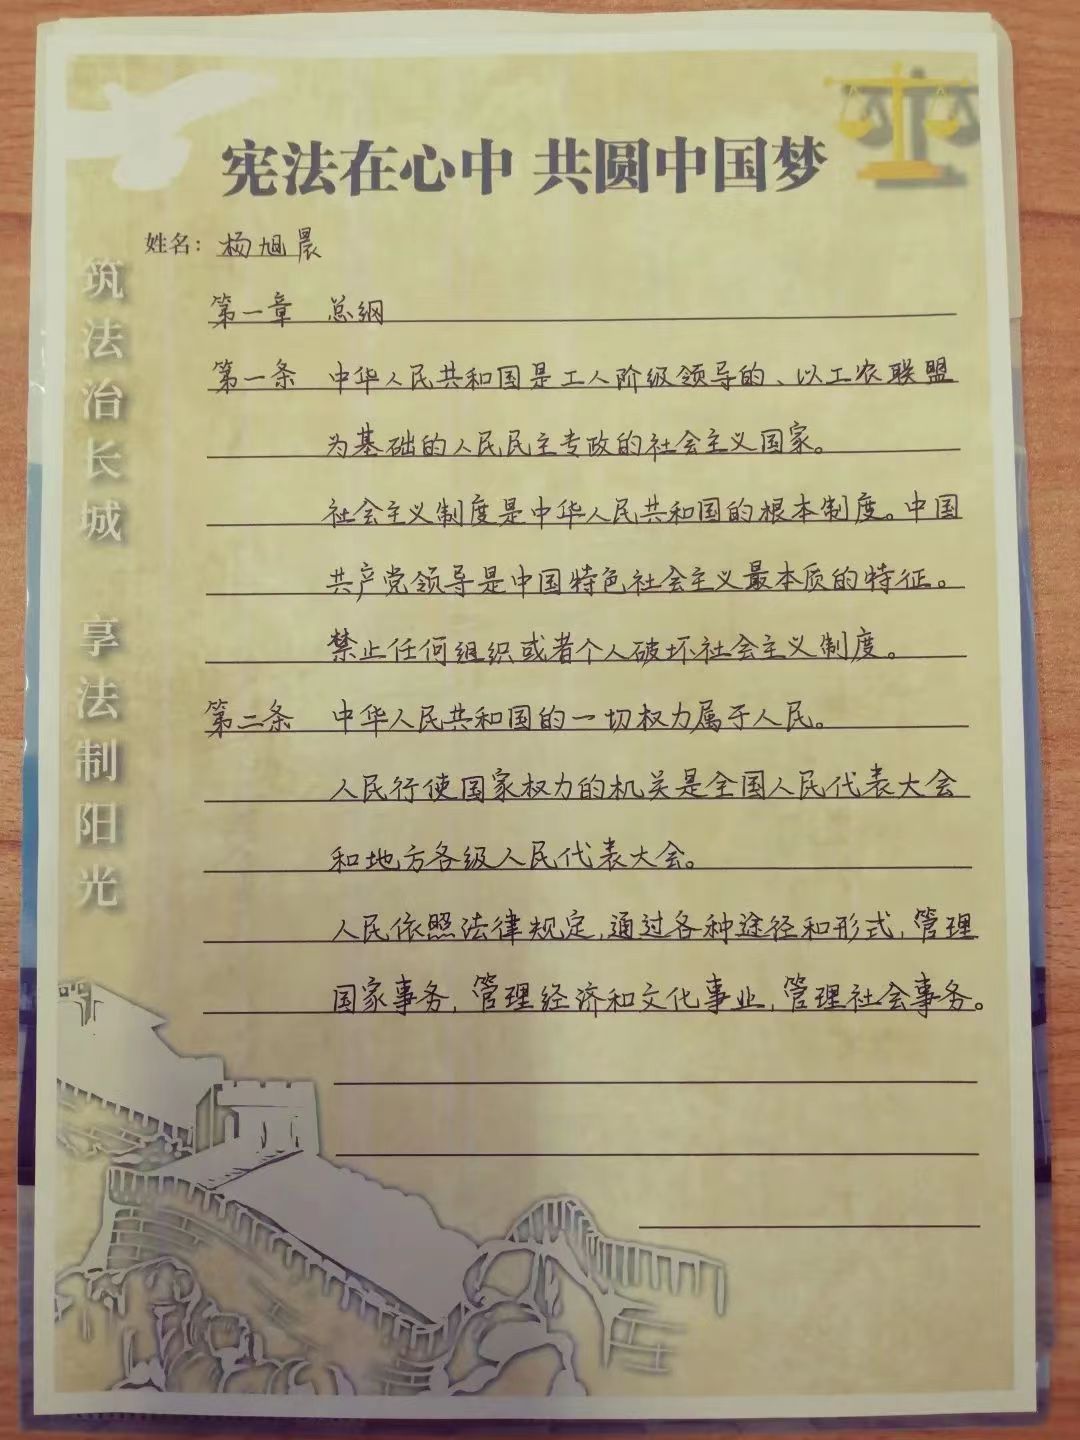 宪法在心中 共圆中国梦
姓名：杨旭晨
筑法治长城 享法制阳光
第一章 总纲
第一条 中华人民共和国是工人阶级领导的、以工农联盟
为基础的人民民主专政的社会主义国家。
社会主义制度是中华人民共和国的根本制度。中国
共产党领导是中国特色社会主义最本质的特征。
禁止任何组织或者个人破坏社会主义制度。
第二条 中华人民共和国的一切权力属于人民。
人民行使国家权力的机关是全国人民代表大会
和地方各级人民代表大会。
人民依照法律规定，通过各种途径和形式，管理
国家事务，管理经济和文化事业，管理社会事务。